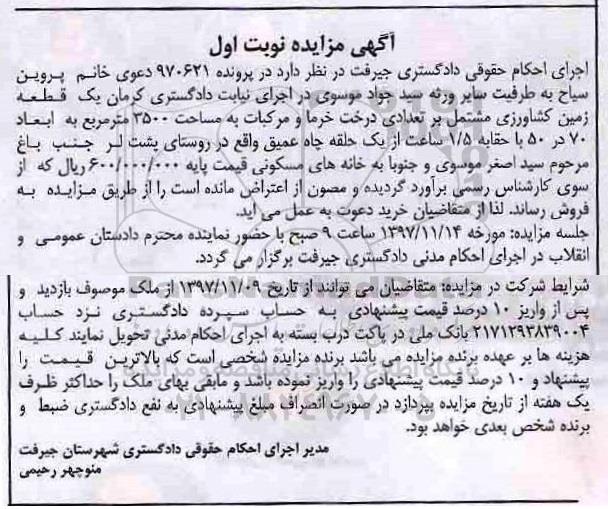 آگهی مزایده نوبت اول
اجرای احکام حقوقی دادگستری جیرفت در نظر دارد در پرونده ۹۷۰۶۲۱ دعوی خانم پروین
سیاح به طرفیت سایر ورثه سید جواد موسوی در اجرای نیابت دادگستری کرمان یک قطعه
زمین کشاورزی مشتمل بر تعدادی درخت خرما و مرکبات به مساحت ۳۵۰۰ مترمربع به ابعاد
۷۰ در ۵۰ با حقابه ۱/۵ ساعت از یک حلقه چاه عمیق واقع در روستای پشت لر جنب باغ
مرحوم سید اصغر موسوی و جنوبا به خانه های مسکونی قیمت پایه ۶۰۰/۰۰۰/۰۰۰ ریال که از
سوی کارشناس رسمی برآورد گردیده و مصون از اعتراض مانده است را از طریق مزایده به
فروش رساند. لذا از متقاضیان خرید دعوت به عمل می آید.
جلسه مزایده: مورخه ۱۳۹۷/۱۱/۱۴ ساعت ۹ صبح با حضور نماینده محترم دادستان عمومی و
انقلاب در اجرای احکام مدنی دادگستری جیرفت برگزار می گردد.
شرایط شرکت در مزایده: متقاضیان می توانند از تاریخ ۱۳۹۷/۱۱/۰۹ از ملک موصوف بازدید و
پس از واریز ۱۰ درصد قیمت پیشنهادی به حساب سپرده دادگستری نزد حساب
۲۱۷۱۲۹۳۸۳۹۰۰۴ بانک ملی در پاکت درب بسته به اجرای احکام مدنی تحویل نمایند کلیه
هزینه ها بر عهده برنده مزایده می باشد برنده مزایده شخصی است که بالاترین قیمت را
پیشنهاد و ۱۰ درصد قیمت پیشنهادی را واریز نموده باشد و مابقی بهای ملک را حداکثر ظرف
یک هفته از تاریخ مزایده بپردازد در صورت انصراف مبلغ پیشنهادی به نفع دادگستری ضبط و
برنده شخص بعدی خواهد بود.
مدیر اجرای احکام حقوقی دادگستری شهرستان جیرفت
منوچهر رحیمی